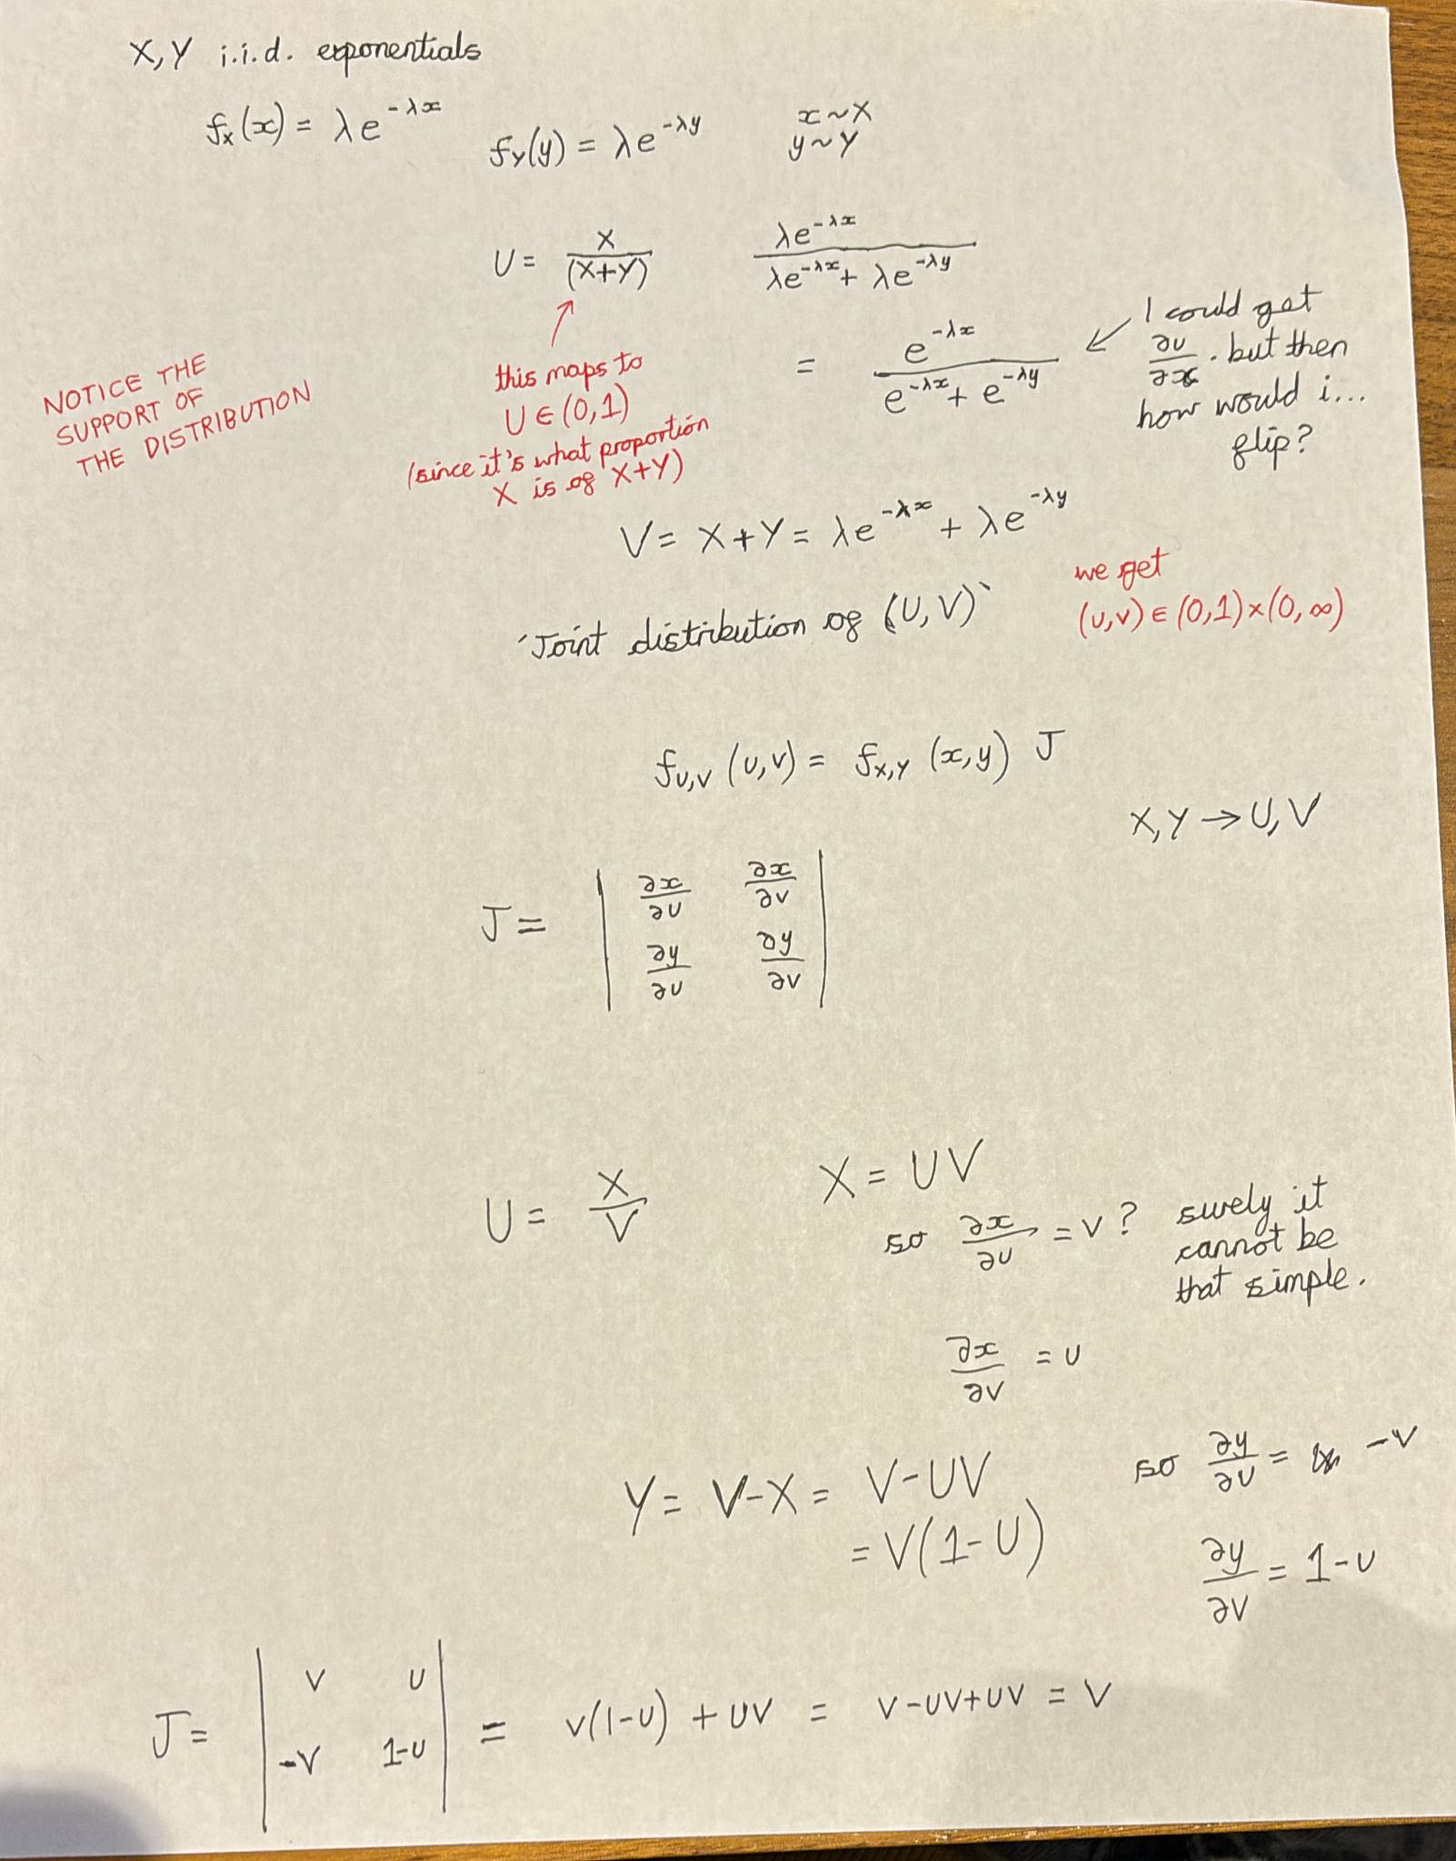 X, Y i.i.d. exponentials
fₓ(x) = λe^{-λx}
f_Y(y) = λe^{-λy}
x ~ X
y ~ Y
U = X/(X+Y)
λe^{-λx} / (λe^{-λx} + λe^{-λy})
= e^{-λx} / (e^{-λx} + e^{-λy})
I could get
∂U/∂x . but then
how would i...
flip?
this maps to
U ∈ (0,1)
(since it's what proportion
X is of X+Y)
NOTICE THE
SUPPORT OF
THE DISTRIBUTION
V = X+Y = λe^{-λx} + λe^{-λy}
we get
(U,V) ∈ (0,1)×(0,∞)
'Joint distribution of (U,V)`
f_{U,V}(U,V) = f_{X,Y}(x,y) J
X,Y → U,V
J = | ∂x/∂U ∂x/∂V |
| ∂y/∂U ∂y/∂V |
U = X/V
X = UV
so ∂x/∂U = V? surely it
cannot be
that simple.
∂x/∂V = U
Y = V-X = V-UV
= V(1-U)
so ∂y/∂U = -V
∂y/∂V = 1-U
J = | V U |
| -V 1-U |
= V(1-U) + UV = V-UV+UV = V